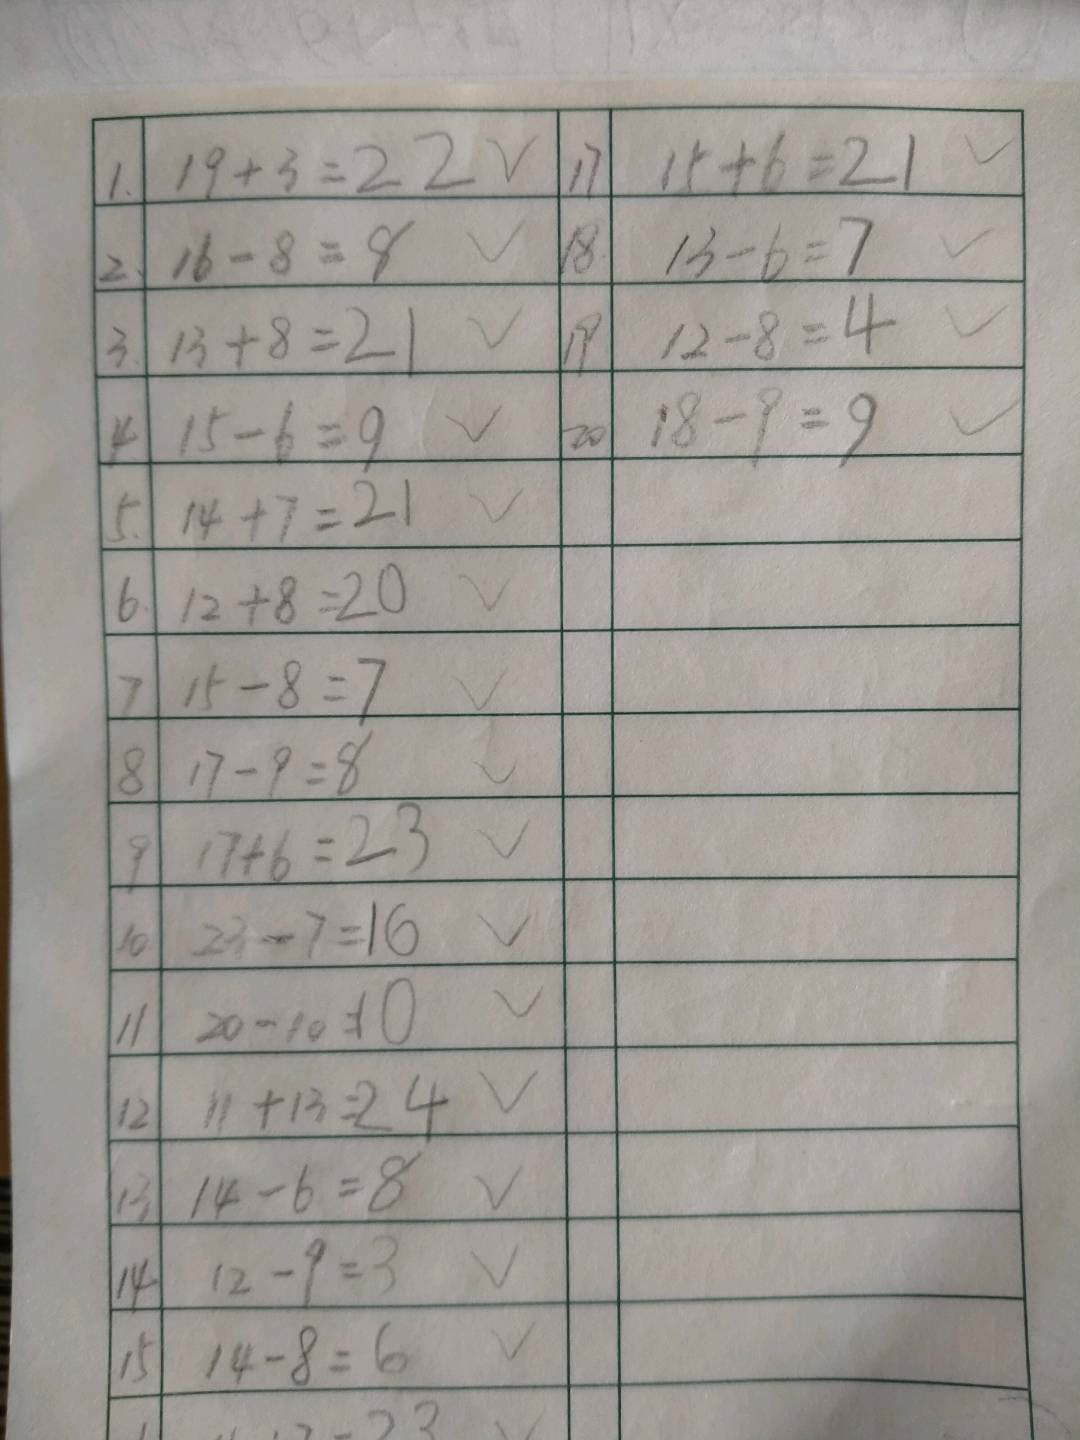 1. 19+3=22 ✓
2. 16-8=8 ✓
3. 13+8=21 ✓
4 15-6=9 ✓
5. 14+7=21 ✓
6. 12+8=20 ✓
7 15-8=7 ✓
8 17-9=8 ✓
9 17+6=23 ✓
10 23-7=16 ✓
11 20-10=10 ✓
12 11+13=24 ✓
13 14-6=8 ✓
14 12-9=3 ✓
15 14-8=6 ✓
=23
17 15+6=21 ✓
18. 13-6=7 ✓
19 12-8=4 ✓
20 18-9=9 ✓